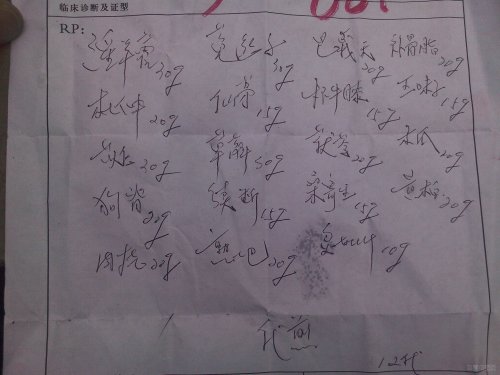 临床诊断及证型
RP:
淫羊藿30g 菟丝子30g 巴戟天20g 补骨脂20g
杜仲20g 仙茅15g 怀牛膝15g 五味子15g
20g 萆薢30g 茯苓20g 木瓜20g
狗脊20g 续断15g 桑寄生15g 黄柏20g
20g 20g 10g
代煎
12代